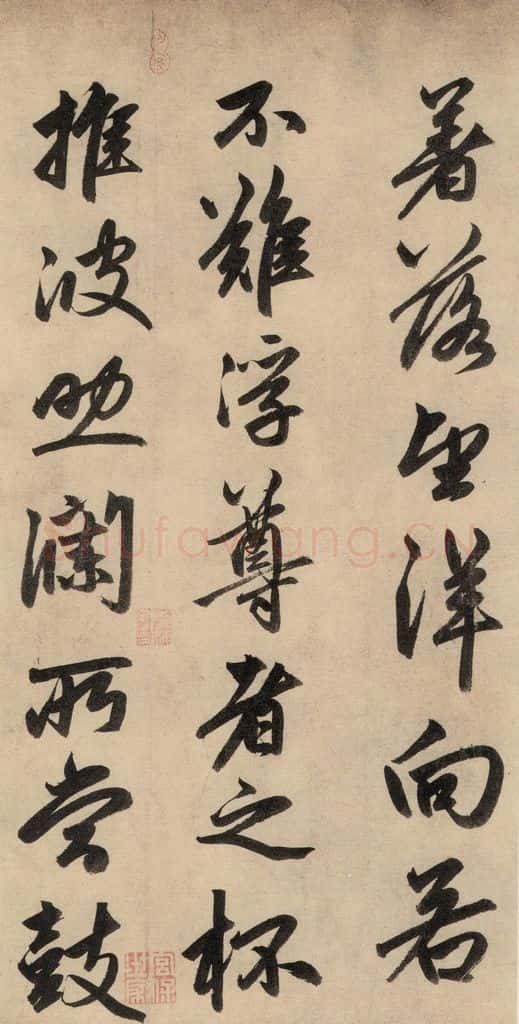 著落望洋向若
不難浮尊者之杯
推波助瀾所當鼓
shufawang.CN